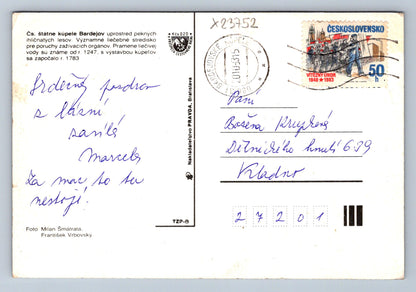 x 23752
Čs. štátne kúpele Bardejov uprostred pekných
ihličnatých lesov. Významné liečebné stredisko
pre poruchy zažívacích orgánov. Pramene liečivej
vody sú známe od r. 1247, s výstavbou kúpeľov
sa započalo r. 1783
Srdečný pozdrav
z lázní
zasílá
Marcela
Za moc to tu
nestojí.
Foto Milan Šmárnats
František Vrbovský
Nakladateľstvo PRAVDA, Bratislava
TZP-®
ČESKOSLOVENSKO
VÍTĚZNÝ ÚNOR
1948 ★ 1983
50 h
Paní
Božena
639
Kladno
27201